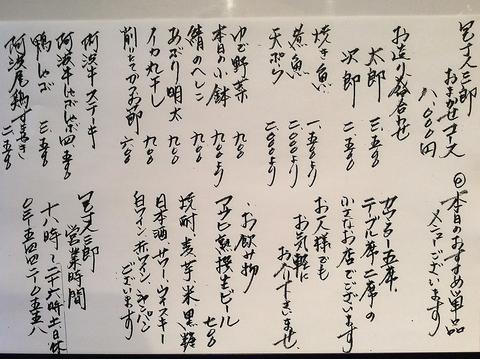 おまかせコース
八、000円
お造り盛合わせ
太郎 三、五00
次郎 二、五00
焼き魚 一、五00より
煮魚 二、000より
天ぷら 二、000より
ゆで野菜 九00
本日の小鉢 九00より
鯖のヘレシ 九00
あぶり明太 九00
イカ丸干し 九00
六00
阿波牛ステーキ
阿波牛しゃぶしゃぶ 四、五00
鴨しゃぶ 三、五00
阿波尾鶏すきやき 二、五00
◎本日のおすすめ単品
メニューございます
カウンター五席、
テーブル席二席の
小さなお店でございます
お一人様でも
お気軽に
お入り下さいませ
お飲み物
アサヒ熟撰生ビール 七00
焼酎 麦 芋 米 黒糖
日本酒、サワー、ウイスキー
白ワイン、赤ワイン、シャンパン
ございます
営業時間
十八時〜二十六時 土日休